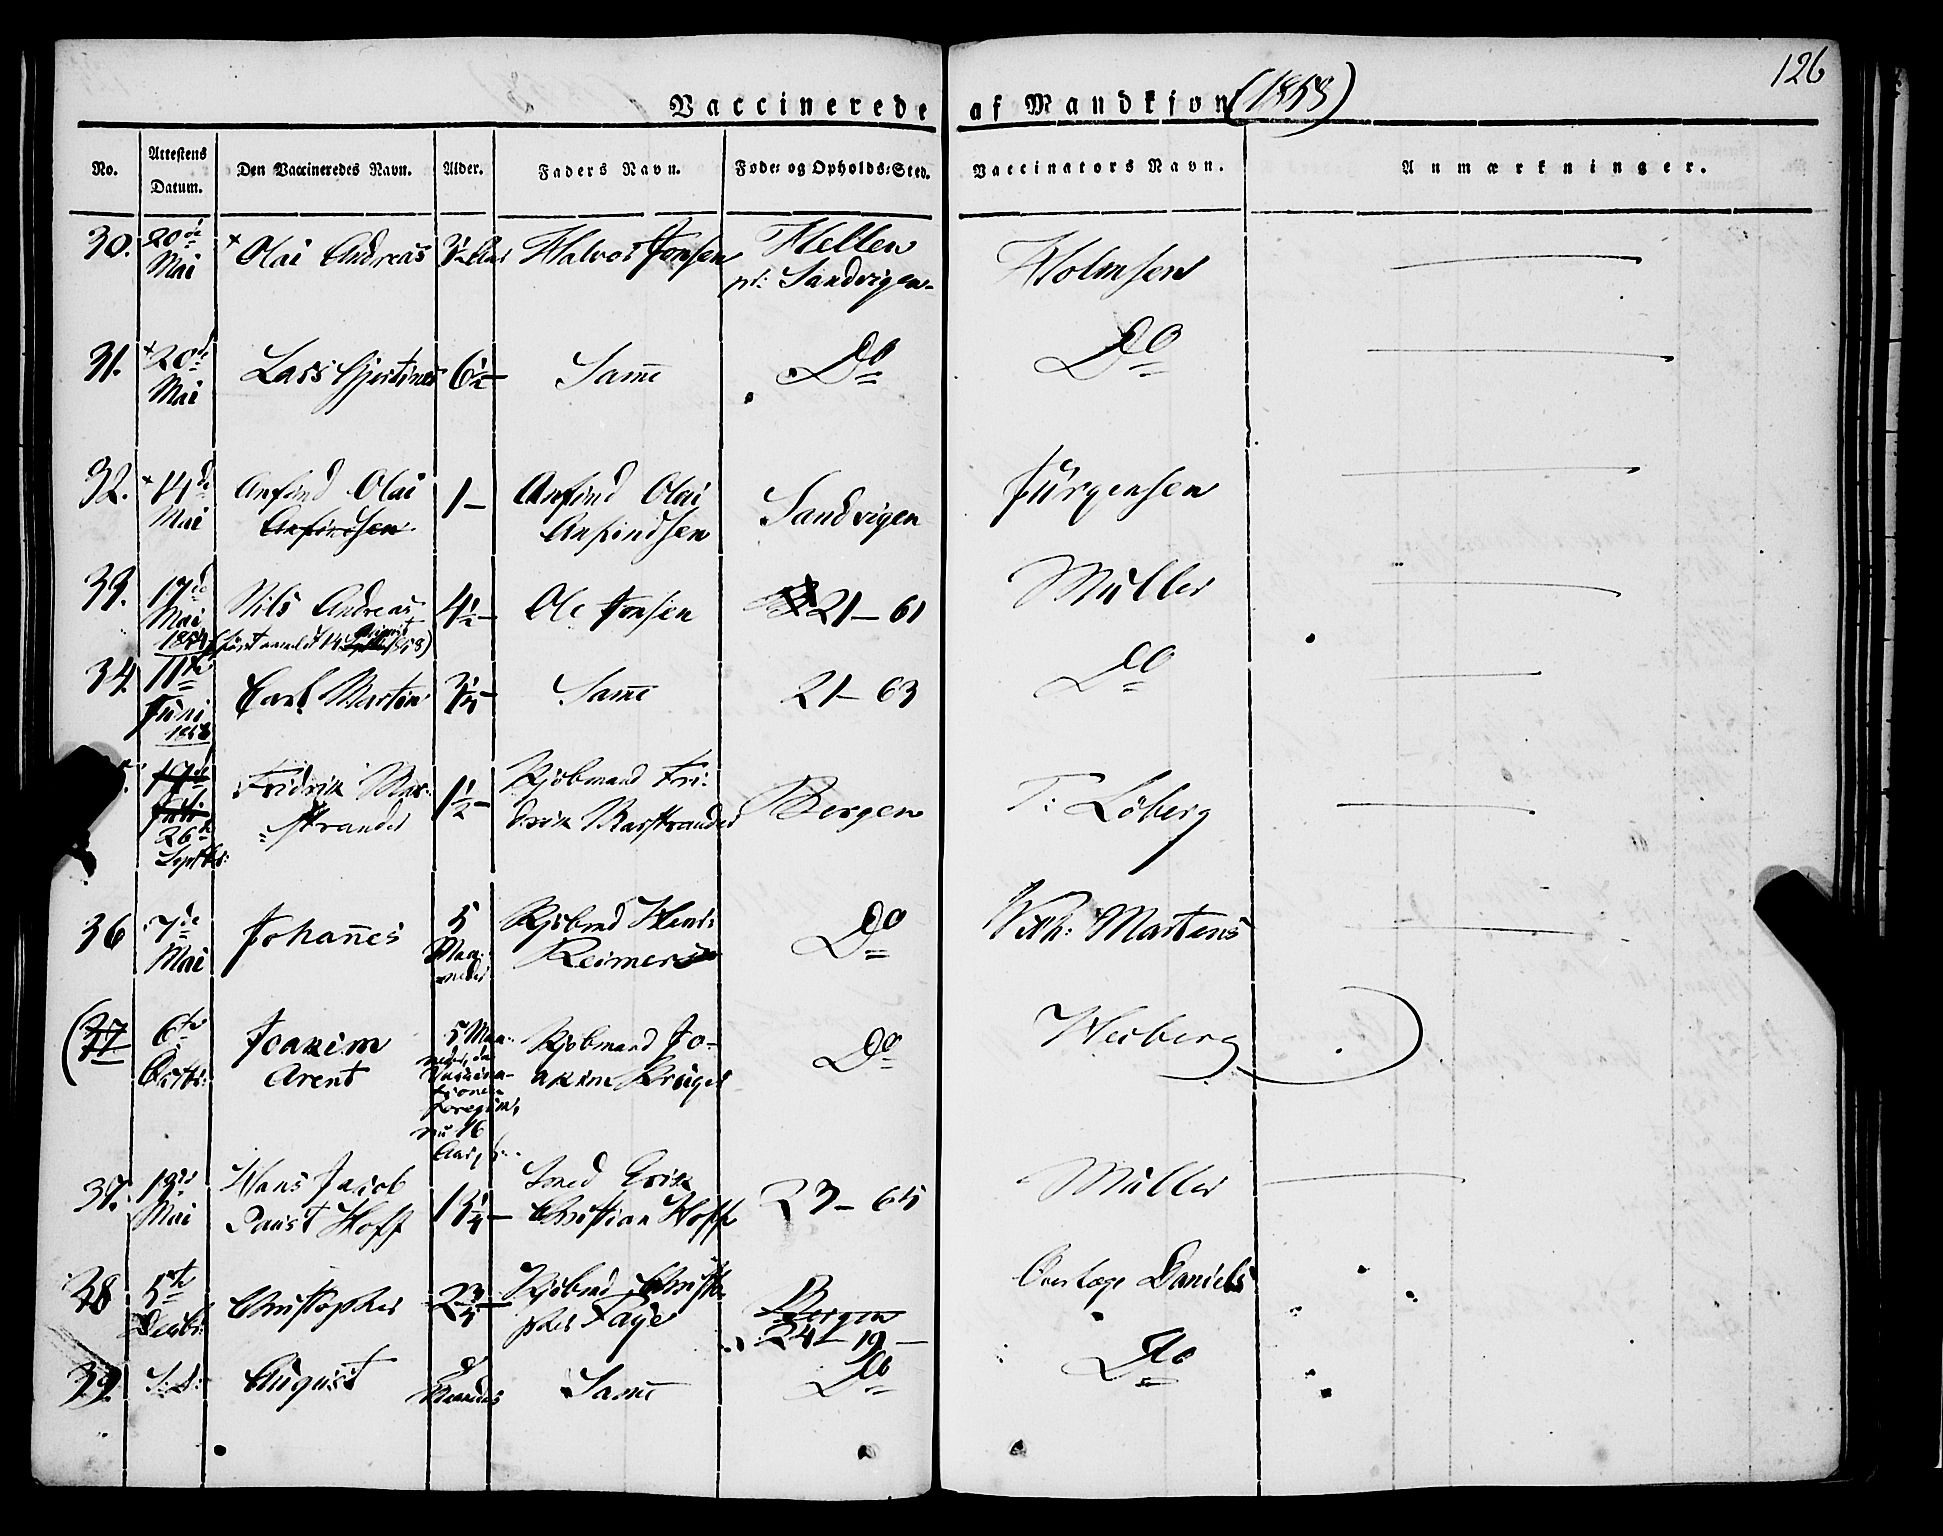 126
Vaccinerede af Mandkjøn (1858)
No. Attestens Datum. Den Vaccineredes Navn. Alder. Faders Navn. Føde- og Opholds-Sted. Vaccinators Navn. Anmærkninger.
30. 20de Mai Olai Andreas 3½ Halvor Jonsen Hellen pt: Sandvigen Holmsen
31. 20de Mai Lars Gjertinus 6½ Samme Do Do
32. 14de Mai Anfind Olai Anfindsen 1 Anfind Olai Anfindsen Sandvigen Jürgensen
33. 17de Mai Nils Andreas 4½ Ole Jonsen 21-61 Müller
34. 11te Juni 1858 Carl Martin 3¼ Samme 21-63 Do
26de Septbr: Fridrik Marstrander 1½ Kjöbmand Fridrik Marstrander Bergen T: Löberg
36 7de Mai Johannes 5 Maaneder Kjöbmd Henr: Reimers Do Martens
(37 6te Joakim Arent 5 Maaneder, da Vaccinationen foregik, nu 16 Aar Kjöbmand Joakim Krüger Do Weiberg)
37. Mai Hans Jacob Paust Hoff 1¼ Smed Erik Christian Hoff 23-65 Müller
38 5te Decbr: Christopher 2¾ Kjöbmd Christopher Faye Bergen 24-19 Overlæge Daniels
39. S.D: August Maaneder Samme Do Do